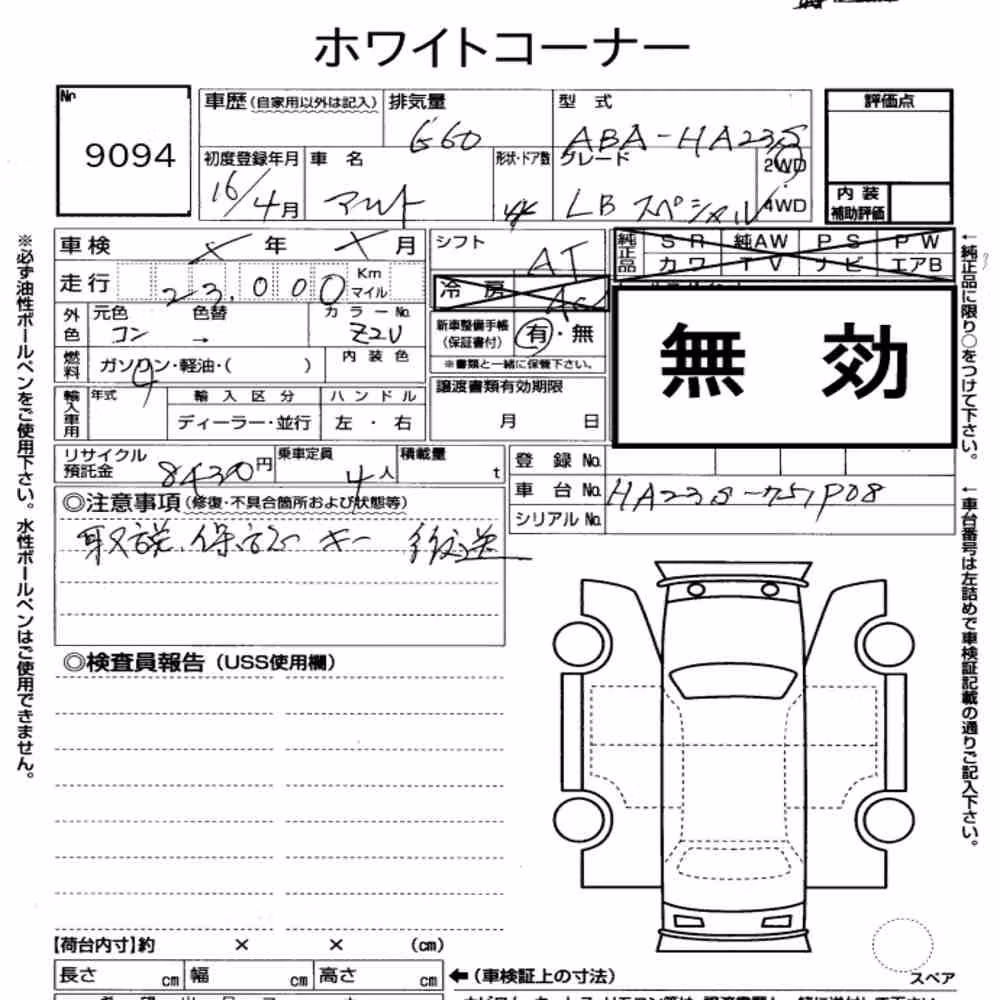 ホワイトコーナー
No.
9094
車歴(自家用以外は記入)
排気量
660
型 式
ABA-HA23S
初度登録年月
16/4月
車 名
アルト
形状・ドア数
グレード
LB スペシャル
2WD
4WD
評価点
内 装
補助評価
車検
× 年 × 月
走行
23,000
Km
マイル
外色
元色
コン
色替
→
カラーNo.
Z2U
燃料
ガソリン・軽油・( )
内 装 色
輸入車用
年式
輸 入 区 分
ディーラー・並行
ハ ン ド ル
左 ・ 右
シフト
AT
冷 房
新車整備手帳
(保証書付)
有・無
※書類と一緒に保管下さい。
譲渡書類有効期限
月 日
純正品
S R
純AW
P S
P W
カワ
T V
ナビ
エアB
無 効
リサイクル
預託金
8430円
乗車定員
4人
積載量
t
登 録 No.
車 台 No.
シリアル No.
◎注意事項(修復・不具合箇所および状態等)
取説、保証 キー 後送
◎検査員報告(USS使用欄)
【荷台内寸】約 × × (cm)
長さ cm
幅 cm
高さ cm
←(車検証上の寸法)
スペア
※必ず油性ボールペンをご使用下さい。水性ボールペンはご使用できません。
←純正品に限り○をつけて下さい。
←車台番号は左詰めで車検証記載の通りご記入下さい。